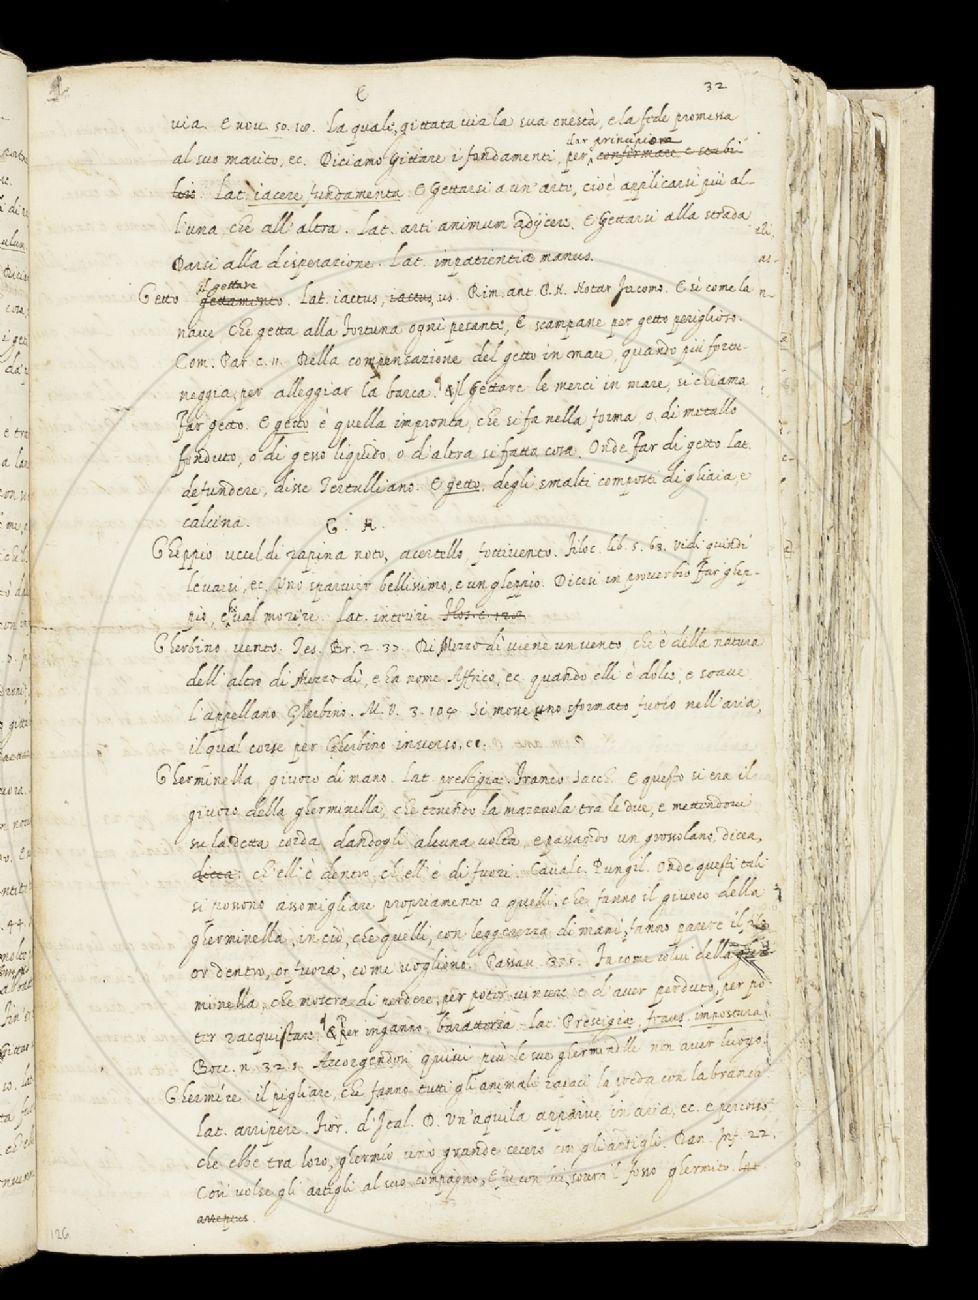 G 32
via. E nov. 50. 18. La quale, gittata via la sua onestà, e la fede promessa
dar principiora
al suo marito, ec. Diciamo Gittare i fondamenti, per confirmare e stabi
lois. Lat. iacere fundamenta. E Gettarsi a un'arte, cioè applicarsi più al-
l'una, che all'altra. Lat. arti animum adijcere. E Gettarsi alla strada
Darsi alla disperazione. Lat. impatientiæ manus.
il gettare
Getto gettamento. Lat. iactus, iactus, us. Rim. ant. P. N. Notar Jacomo. E sì come la
nave Che getta alla fortuna ogni pesante, E scampane per getto periglioso.
Com. Par. c. 11. Della compensazione del getto in mare, quando più fortu-
neggia, per alleggiar la barca. & Il Gettare le merci in mare, si chiama
Far getto. E getto è quella impronta, che si fa nella forma o di metallo
fonduto, o di gesso liquido, o d'altra sì fatta cosa. Onde Far di getto Lat.
defundere, disse Tertulliano. E getto, degli smalti composti di ghiaia, e
calcina. G. H.
Gheppio uccel di rapina noto, acertello, fottivento. Filoc. lib. 5. 63. vidi quindi
levarsi, ec, uno sparvier bellissimo, e un gheppio. Dicesi in proverbio Far ghep-
pio, che val morire. Lat. interire
Gherbino vento. Tes. Br. 2. 37. Di Mezzo dì viene un vento che è della natura
dell'altro di Mezzo dì, e ha nome Affrico, ec quando elli è dolce, e soave
l'appellano Gherbino. M. V. 3. 104 Si mosse uno sformato fuoco nell'aria,
il qual corse per Gherbino inverso, ec.
Gherminella, giuoco di mano. Lat. prestigiæ. Franco Sacch. E questo si era il
giuoco della gherminella, che tenendo la mazzuola tra le due, e mettendovi
su la detta corda, dandogli alcuna volta, e passando un grossolano, dicea,
dicea: ch'ell'è dentro, ch'ell'è di fuori. Cavalc. Pungil. Onde questi tali
si possono assomigliare propriamente a quelli, che fanno il giuoco della
gherminella, in ciò, che quelli, con leggerezza di mani, fanno parere il filo
or dentro, or fuora, come vogliono. Passav. 325. Fa come colui della gher
minella, che mostra di perdere, per poter vincere e d'aver perduto, per po-
ter racquistare. & Per inganno, baratteria. Lat. Prestigiæ, fraus, impostura.
Bocc. n. 32. Accorgendosi quivi più le sue gherminelle non aver luogo.
Ghermire il pigliare, che fanno tutti gli animali rapaci la preda con la branca.
Lat. arripere. Fior. d'Ital. D. Un'aquila apparve in aria, ec. e percosse
che ebbe tra loro, ghermìo uno grande cecero con gli artigli. Dan. Inf. 22.
Così volse gli artigli al suo compagno, E fu con lui, sovra 'l fosso ghermito. Lat
arreptus.
126